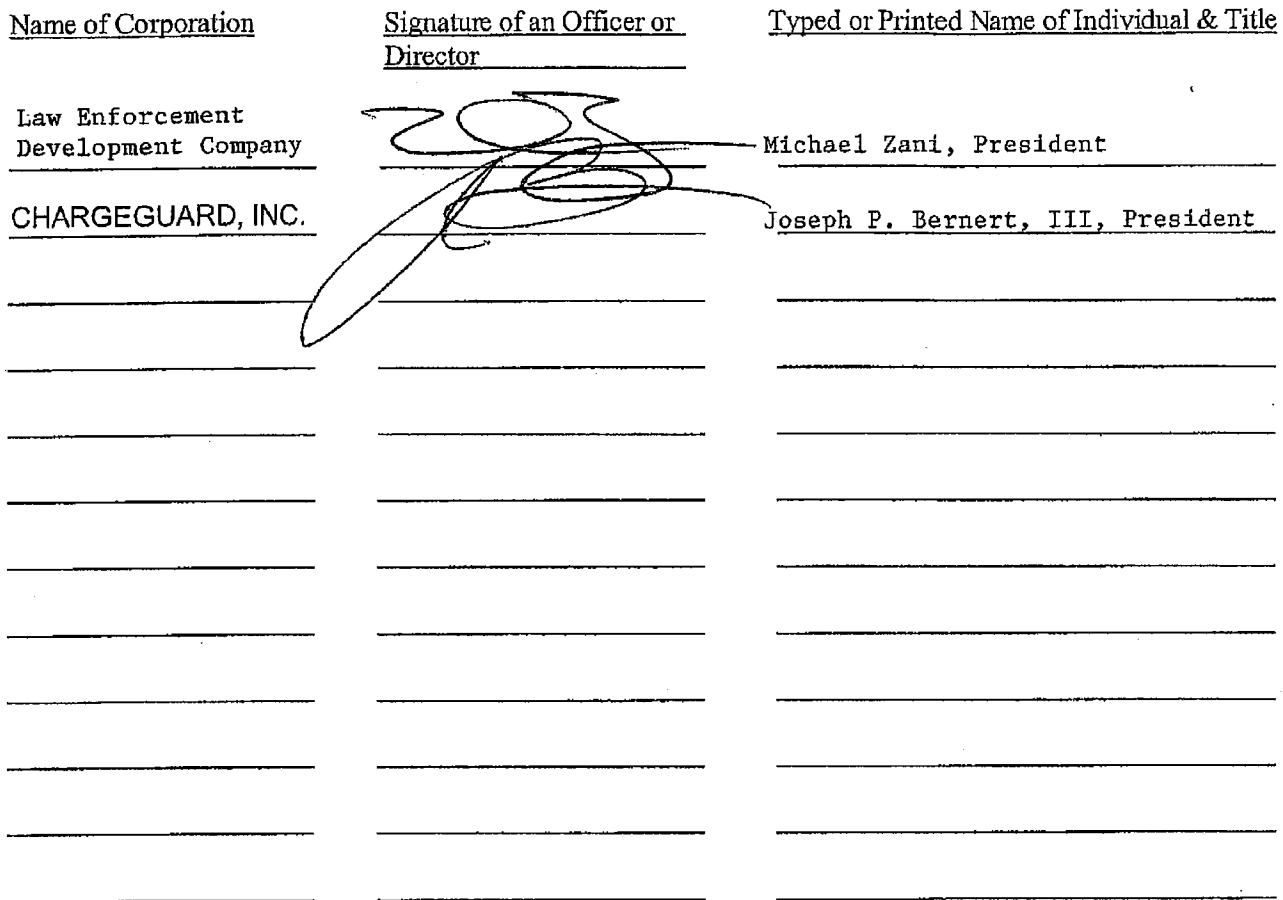 Name of Corporation
Signature of an Officer or
Director
Typed or Printed Name of Individual & Title
Law Enforcement
Development Company
Michael Zani, President
CHARGEGUARD, INC.
Joseph P. Bernert, III, President